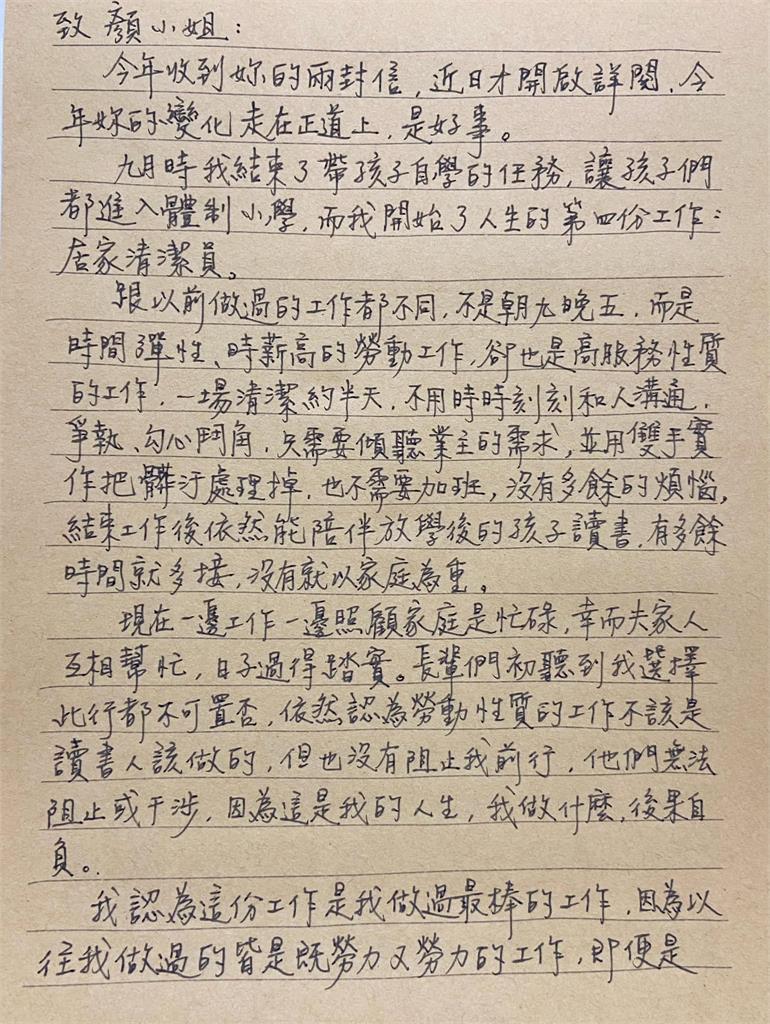 致 顏小姐：
今年收到妳的兩封信，近日才開啟詳閱，今
年妳的變化走在正道上，是好事。
九月時我結束了帶孩子自學的任務，讓孩子們
都進入體制小學，而我開始了人生的第四份工作：
居家清潔員。
跟以前做過的工作都不同，不是朝九晚五，而是
時間彈性、時薪高的勞動工作，卻也是高服務性質
的工作，一場清潔約半天，不用時時刻刻和人溝通，
爭執、勾心鬥角，只需要傾聽業主的需求，並用雙手實
作把髒汙處理掉，也不需要加班，沒有多餘的煩惱，
結束工作後依然能陪伴放學後的孩子讀書，有多餘
時間就多接，沒有就以家庭為重。
現在一邊工作一邊照顧家庭是忙碌，幸而夫家人
互相幫忙，日子過得踏實。長輩們初聽到我選擇
此行都不可置否，依然認為勞動性質的工作不該是
讀書人該做的，但也沒有阻止我前行，他們無法
阻止或干涉，因為這是我的人生，我做什麼，後果自
負。
我認為這份工作是我做過最棒的工作，因為以
往我做過的皆是既勞力又勞力的工作，即便是